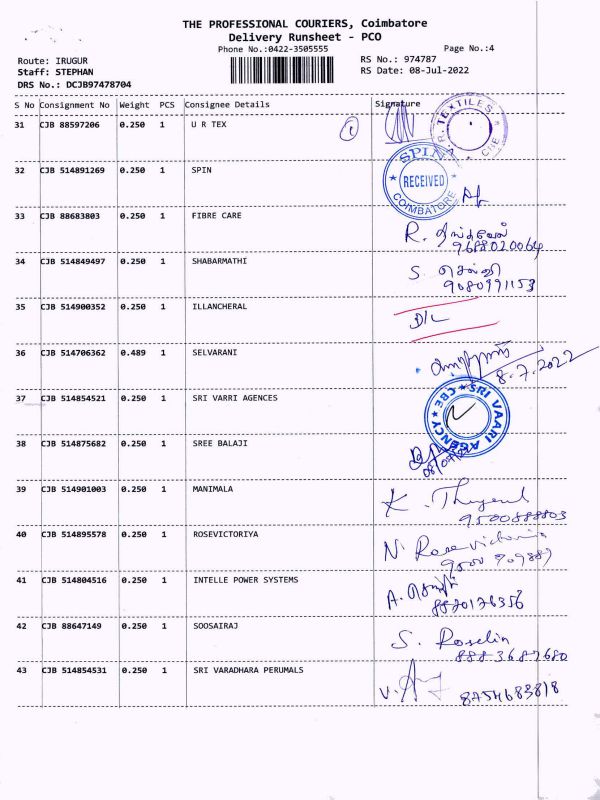 THE PROFESSIONAL COURIERS, Coimbatore
Delivery Runsheet - PCO
Phone No.:0422-3505555
Page No.:4
Route: IRUGUR
RS No.: 974787
Staff: STEPHAN
RS Date: 08-Jul-2022
DRS No.: DCJB97478704
S No Consignment No Weight PCS Consignee Details Signature
31 CJB 88597206 0.250 1 U R TEX
R. TEXTILES CBE
32 CJB 514891269 0.250 1 SPIN
SPIN RECEIVED COIMBATORE
33 CJB 88683803 0.250 1 FIBRE CARE
R.
9688020064
34 CJB 514849497 0.250 1 SHABARMATHI
S. செல்வி
9080991153
35 CJB 514900352 0.250 1 ILLANCHERAL
D/L
36 CJB 514706362 0.489 1 SELVARANI
8.7.2022
37 CJB 514854521 0.250 1 SRI VARRI AGENCES
SRI VAARI AGENCY CBE
38 CJB 514875682 0.250 1 SREE BALAJI
39 CJB 514901003 0.250 1 MANIMALA
K.
9500888803
40 CJB 514895578 0.250 1 ROSEVICTORIYA
N. Rosevictoria
41 CJB 514804516 0.250 1 INTELLE POWER SYSTEMS
A.
8820176356
42 CJB 88647149 0.250 1 SOOSAIRAJ
S. Roselin
8883687680
43 CJB 514854531 0.250 1 SRI VARADHARA PERUMALS
V.
8754683818